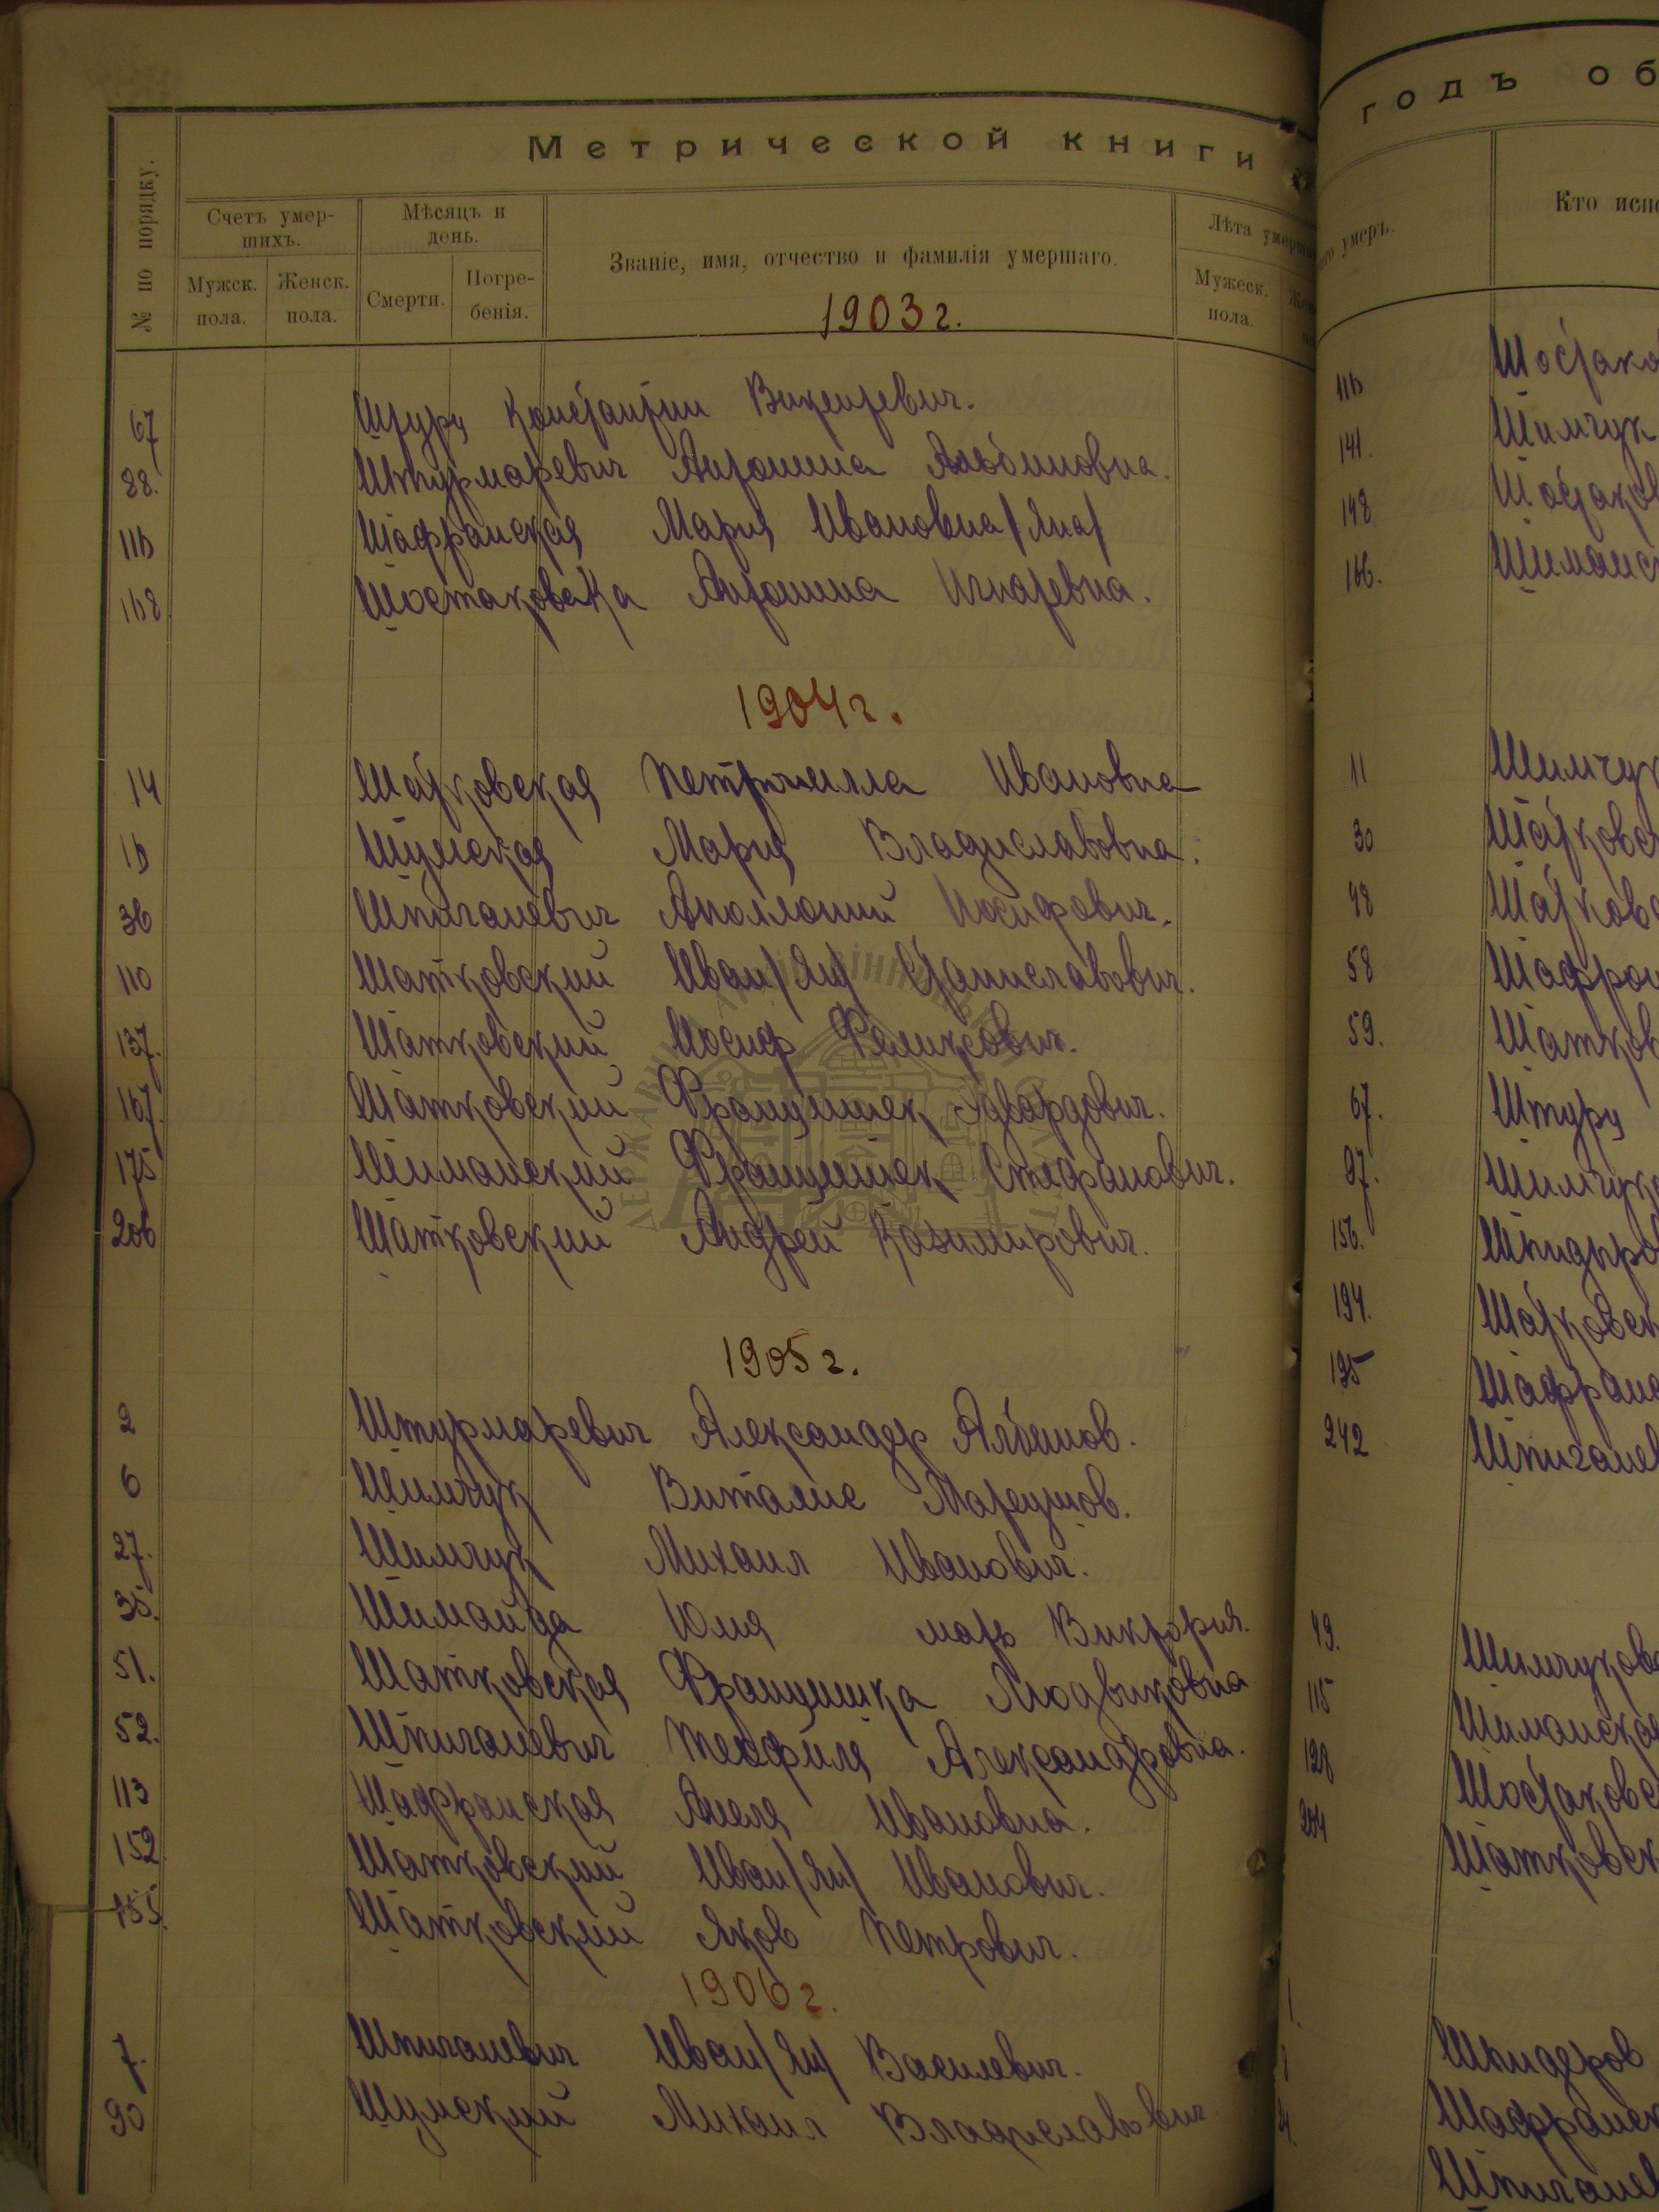 Метрической книги
№ по порядку.
Счетъ умер-
шихъ.
Мужск. пола.
Женск. пола.
Мѣсяцъ и
день.
Смерти.
Погре-
бенія.
Званіе, имя, отчество и фамилія умершаго.
Лѣта
Мужеск. пола.
1903 г.
67 Штура Константин Викентевич.
88. Штурмаревич Антонина Альбиновна.
116 Шафранская Мария Ивановна /Яна/
168 Шостаковска Антонина Игнатевна.
1904 г.
14 Шатковская Петронелла Ивановна
16 Шумская Мария Владиславовна.
36 Шпиганевич Аполлоний Иосифович.
110 Шатковский Иван /Ян/ Станиславович.
137. Шатковский Иосиф Феликсович.
167. Шатковский Францишек Эдвардович.
175 Шиманский Францишек Стефанович.
206 Шатковский Андрей Казимирович.
1905 г.
2 Штурмаревич Александер Альбинов.
6 Шимчук Виталис
27. Шимчук Михаил Иванович.
35. Шимайда Юлия мать Виктория.
51. Шатковская Францишка Людвиковна
52. Шпиганевич Теофиля Александровна.
113 Шафранская Анеля Ивановна.
152 Шатковский Иван /Ян/ Иванович.
155. Шатковский Яков Петрович.
1906 г.
7. Шпиганевич Иван /Ян/ Василевич.
90 Шумский Михаил Владиславович
годъ об
умеръ.
Кто исп
116 Шостако
141. Шимчук
148 Шостаков
166. Шиманс
11 Шимчук
30 Шатковс
48 Шатковс
58 Шафран
59. Шатков
67. Штура
97. Шимчук
156. Шпидыро
194. Шатковск
195 Шафранс
242 Шпиганев
49. Шимчуков
115 Шиманская
128 Шостаковс
204 Шатковск
Шпидеров
Шафранск
Шпиганев